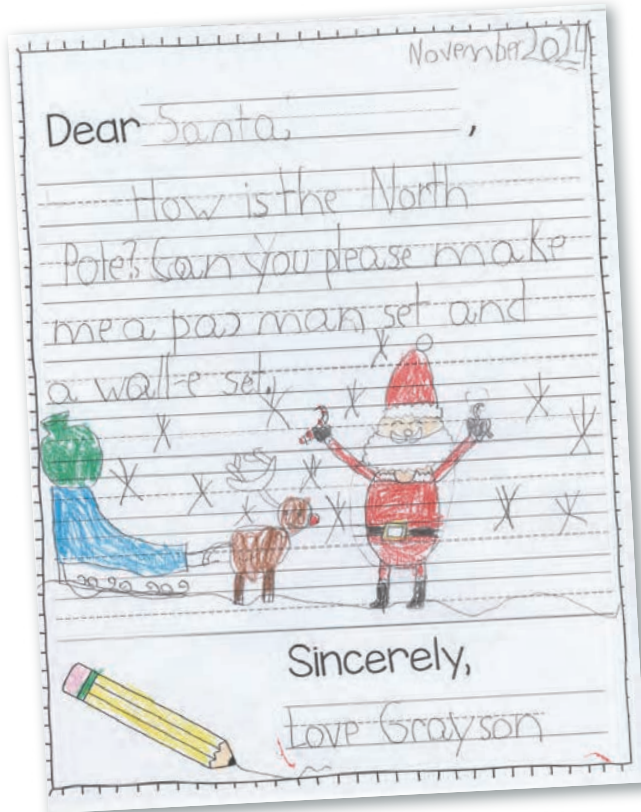 November 2024
Dear Santa, ,
How is the North
Pole? Can you please make
me a pac man set and
a wall-e set.
Sincerely,
Love Grayson